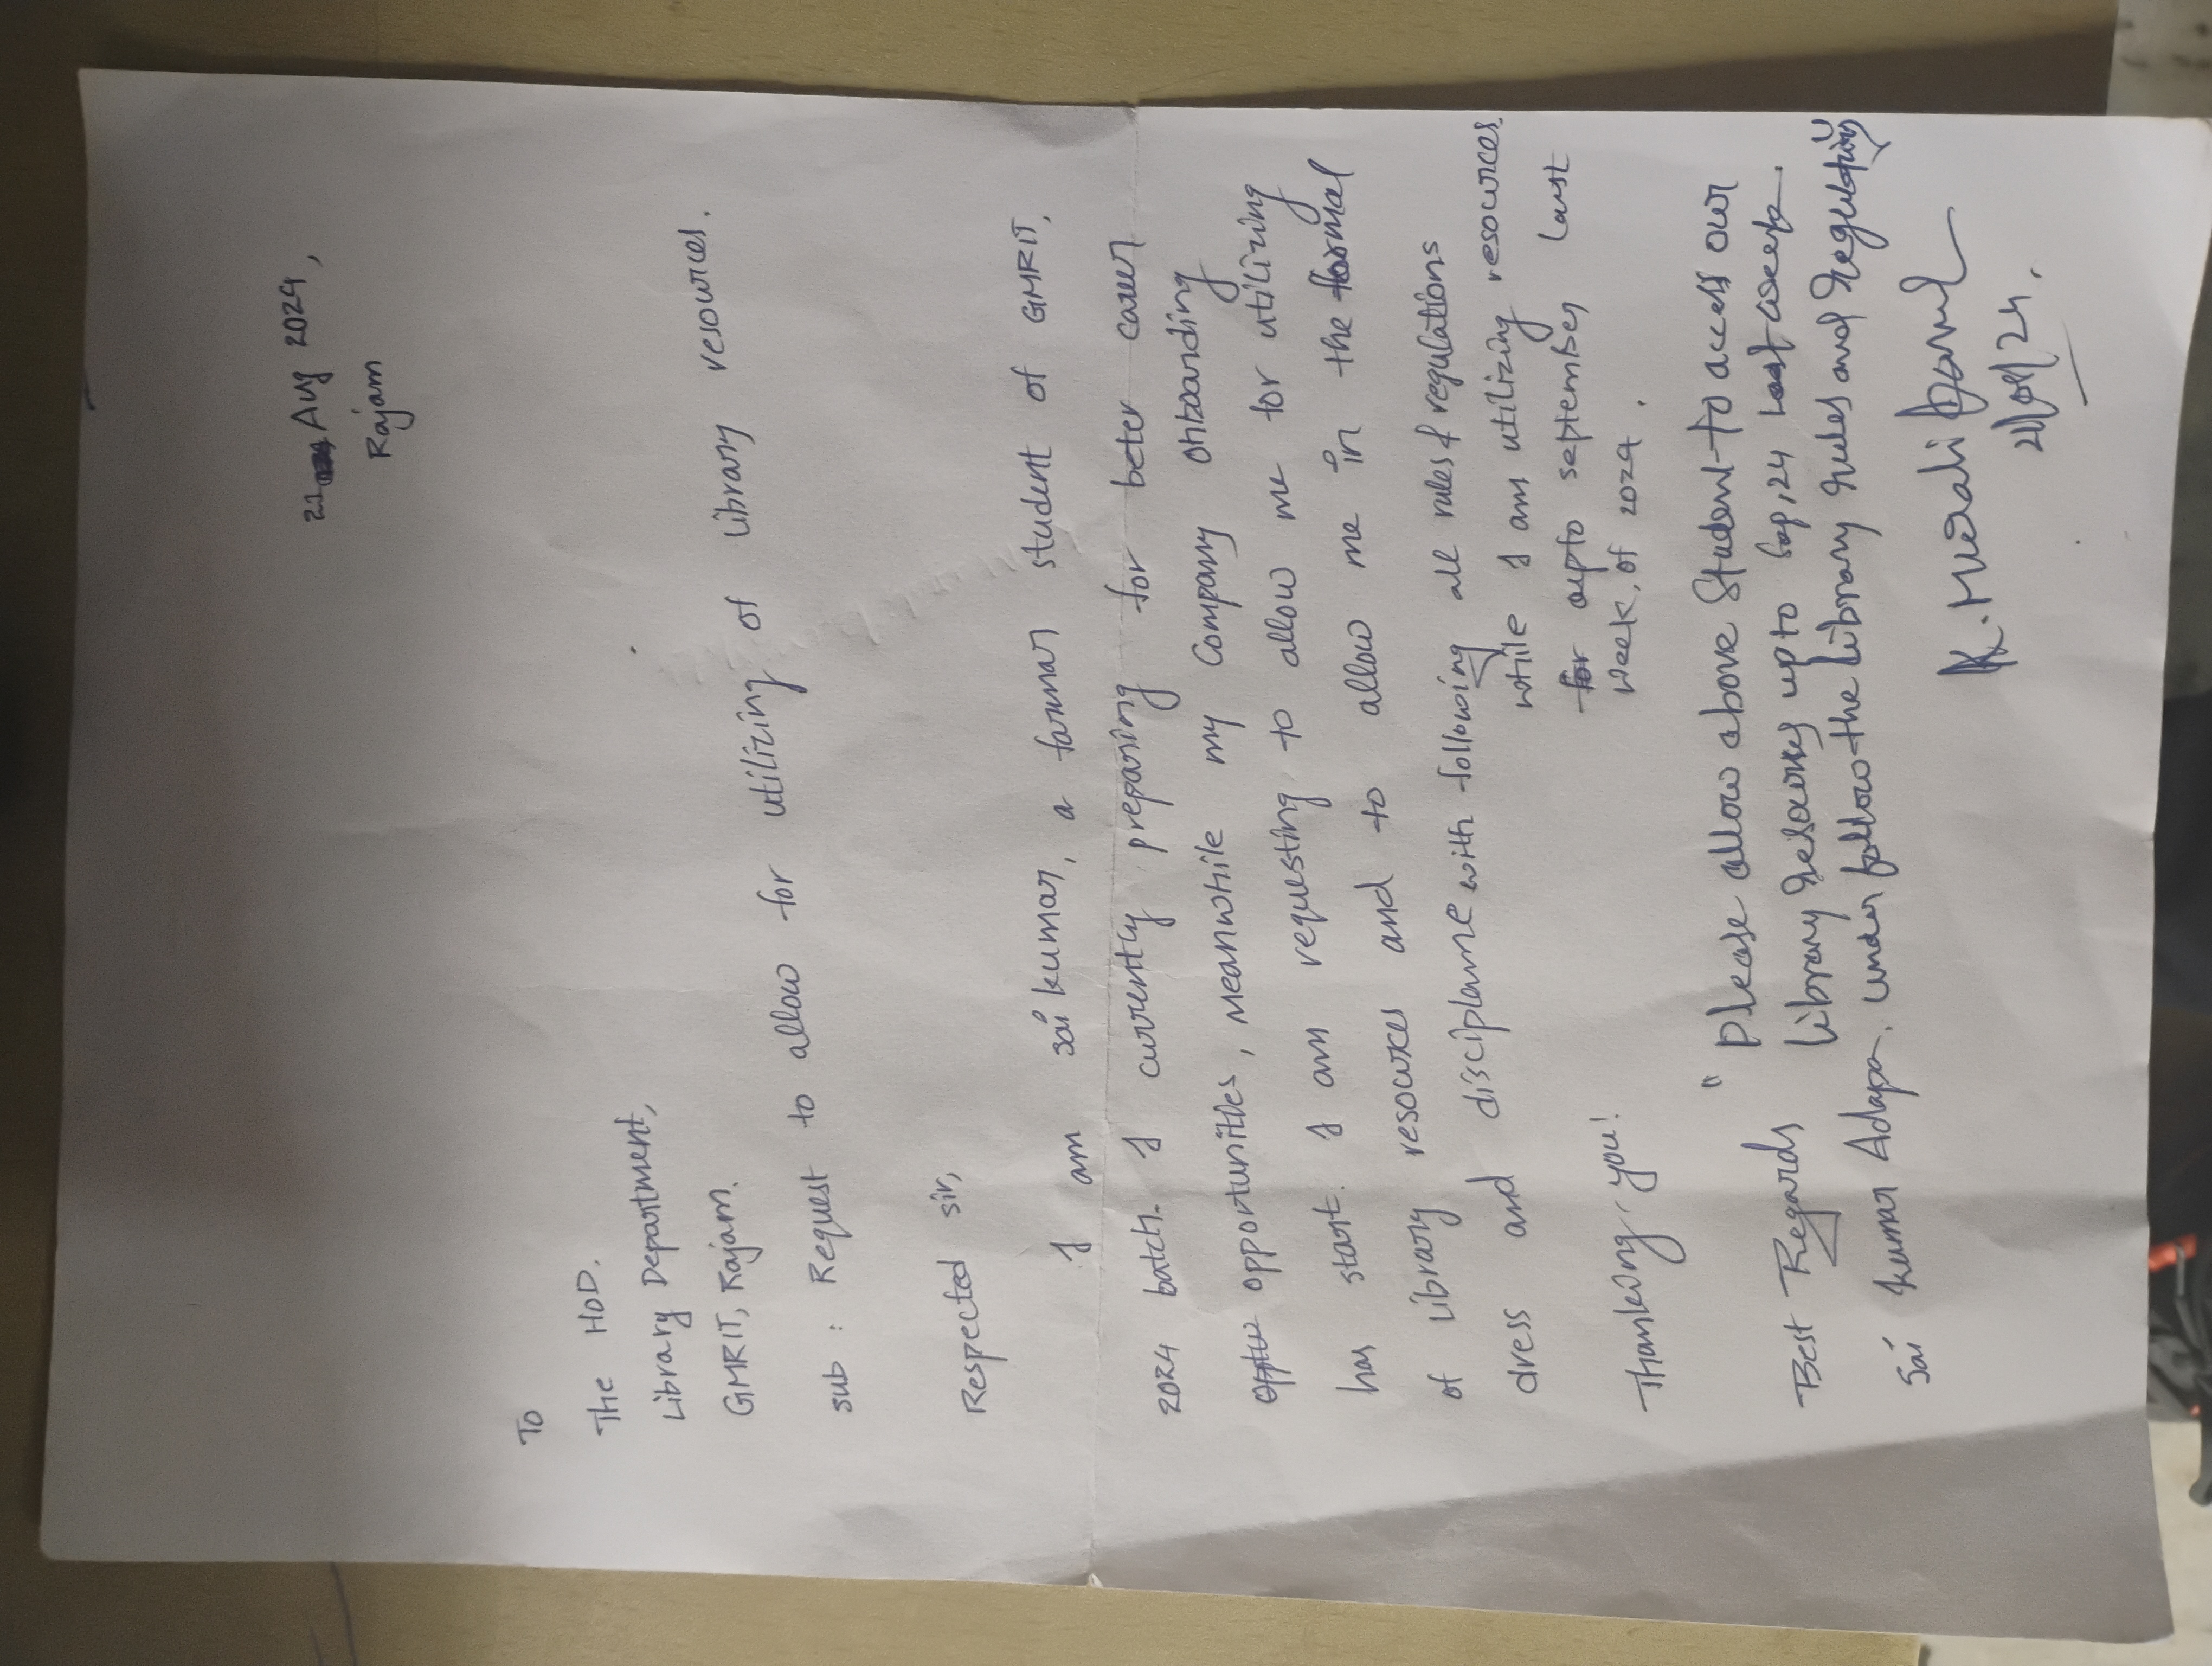 21 Aug 2024,
Rajam
To
The HoD.
Library Department,
GMRIT, Rajam.
sub : Request to allow for utilizing of library resources.
Respected sir,
I am sai kumar, a formar student of GMRIT,
2024 batch. I currently preparing for beter career
opportunities, meanwhile my Company onboarding
has start. I am requesting to allow me for utilizing
of library resources and to allow me in the formal
dress and disciplaine with following all rules & regulations
while I am utilizing resources.
for upto september last
week, of 2024.
Thanking you!
"Please allow above Student to access our
library resources upto Sep, 24 last week.
under follow the library rules and regulations
Best Regards
Sai kumar Adapa.
K. Murali
21/08/24.